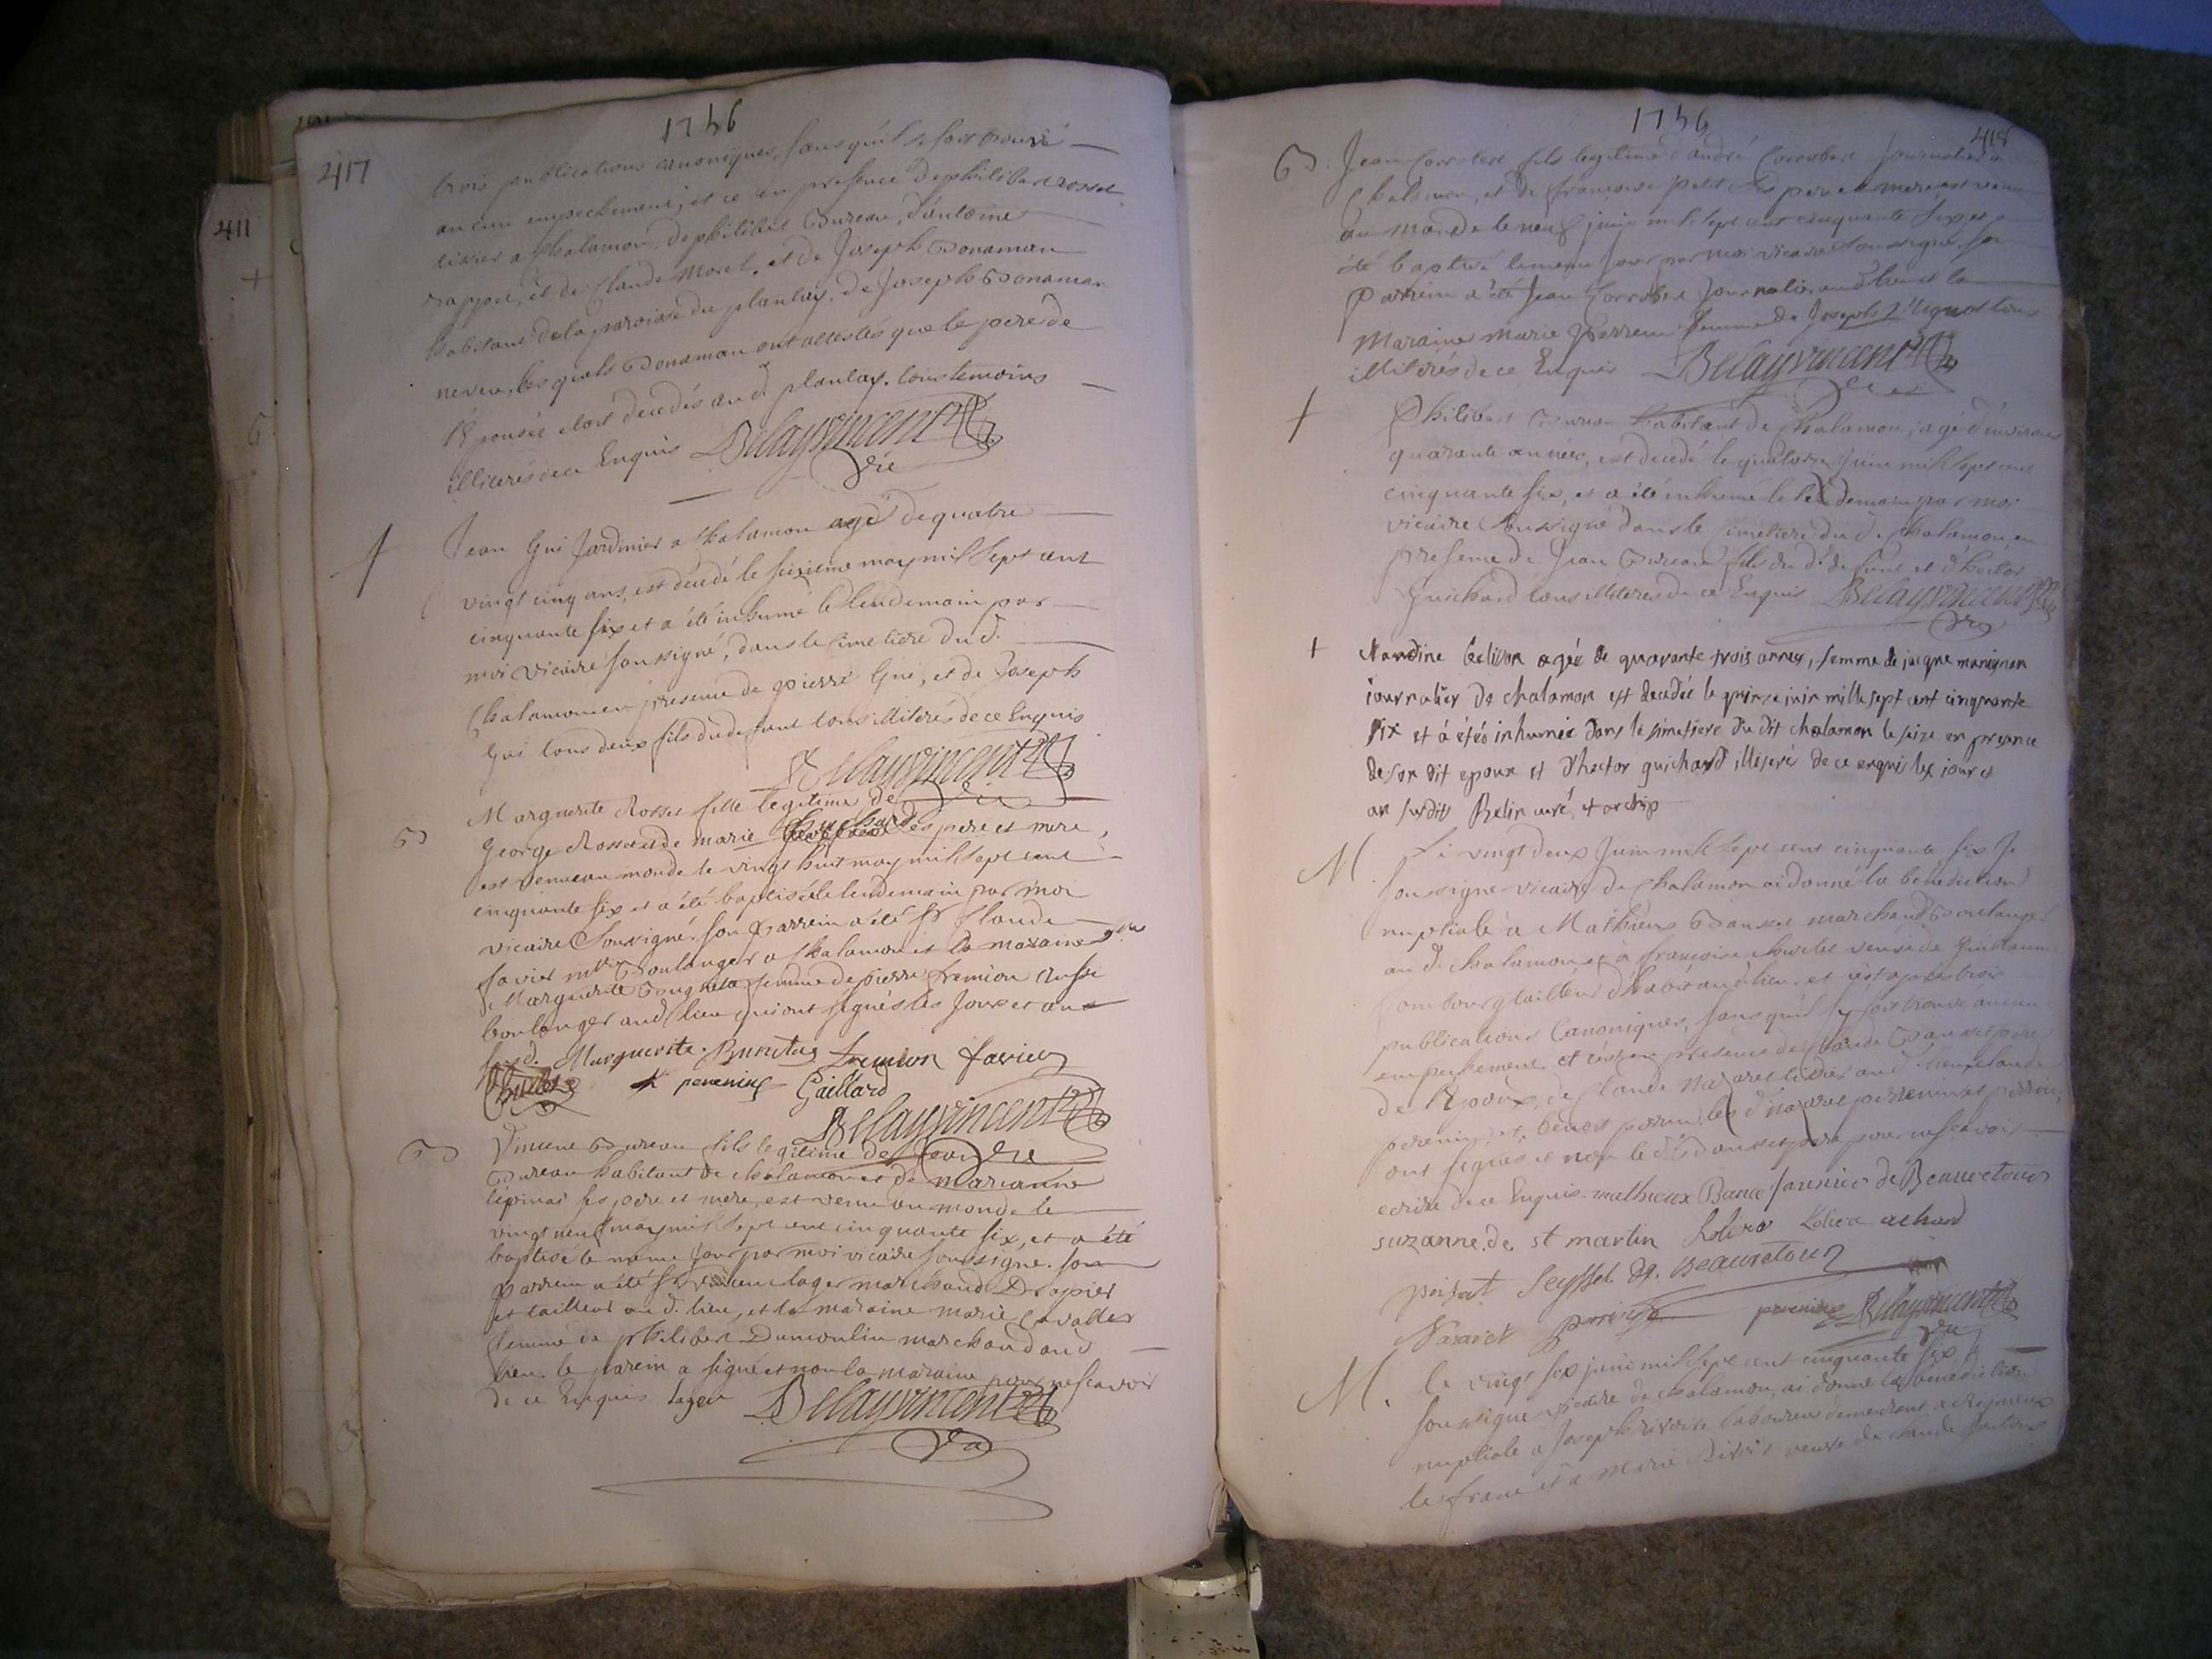 1756
417
trois publications canoniques, sans qu'il se soit trouvé
aucun empechement, et ce en presence de philibert rosset
tixier a Chalamon, de philibert Bureau, d'antoine
et de Claude Morel, et de Joseph Bonaman
habitans de la paroisse du plantay, de Joseph Bonaman
neveu, les quels Bonaman ont attestés que le pere de
l'Epousée etoit decedés aud. plantay. tous temoins
illiterés de ce Enquis Delayvincent
Vic
Jean Gui Jardinier a Chalamon agé de quatre
vingt cinq ans, est decedé le seixieme may mil sept cent
cinquante six et a été inhumé le lendemain par
moi vicaire soussigné, dans le cimetiere dud.
Chalamon en presence de pierre Gui, et de Joseph
Gui tous deux fils du defunt tous illiterés de ce Enquis
Delayvincent
Vic
Marguerite Rosset fille legitime de
George Rosset et de marie ses pere et mere,
est venue au monde le vingt huit may mil sept cent
cinquante six et a été baptisée le lendemain par moi
vicaire soussigné. son parrein a été sr Claude
favier mtre Boulanger a Chalamon et la maraine
Marguerite femme de pierre fremion aussi
boulanger aud. lieu qui ont signés les Jour et an
susd. Marguerite fremion favier
perenins Gaillard
Delayvincent
Vic
Vincent Bureau fils legitime de Jean
Bureau habitant de chalamon et de marianne
lépinai ses pere et mere, est venu au monde le
vingt neuf may mil sept cent cinquante six, et a été
baptisé le même Jour par moi vicaire soussigné. son
parrein a été sr vincent lager marchand Drapier
et tailleur aud. lieu, et la maraine marie
femme de philibert Dumoulin marchand aud.
lieu. le parein a signé et non la maraine pour ne scavoir
de ce Enquis lager Delayvincent
Vic
411
1756
418
Jean fils legitime d'andré Journalier a
Chalamon, et de francoise petit ses pere et mere est venu
au monde le neuf juin mil sept cent cinquante six et a
été baptisé le meme Jour par moi vicaire soussigné. son
parrein a été Jean Journalier aud. lieu et la
maraine marie perreau femme de Joseph tous
illiterés de ce Enquis Delayvincent
Vic
Philibert Bureau habitant de Chalamon, agé d'environ
quarante années, est decedé le quatorze Juin mil sept cent
cinquante six, et a été inhumé le lendemain par moi
vicaire soussigné dans le cimetiere dud. Chalamon, en
presence de Jean Bureau fils du d. defunt et d'hector
Guichard tous illiterés de ce Enquis Delayvincent
Vic
agée de quarante trois annes, femme de jacque manignan
journalier de chalamon est decedée le quinze juin mille sept cent cinquante
six et á étéé inhumée dans le simetiere du dit chalamon le seize en presance
de son dit epoux et d'hector guichard illiteré de ce enquis les jour et
an susdits Belin curé, et archip
M.
Le vingt deux Juin mil sept cent cinquante six Je
soussigné vicaire de Chalamon ai donné la benediction
nuptiale a Mathieux marchand Boulanger
aud. chalamon et à francoise veuve de Guillaume
tailleur d'habits aud. lieu. et cest aprés trois
publications Canoniques, sans qu'il y soit trouvé aucun
empechement et c'est en presence de Claude pere
de l'Epoux, de Claude Nazaret tixier aud. lieu, Claude
perenin, et benoit perrin, les d. nazaret perenin et perrin,
ont signés et non le d. pere pour ne scavoir
ecrire de ce Enquis mathieux de Beauretour
suzanne. de st martin achard
Seyssel de. Beauretour
Nazaret perrin perenins Delayvincent
Vic
M.
Le vingt six juin mil sept cent cinquante six Je
soussigné vicaire de chalamon, ai donné la benediction
nuptiale à Joseph laboureur demeurant a Crizieux
le franc et a Marie veuve de Claude